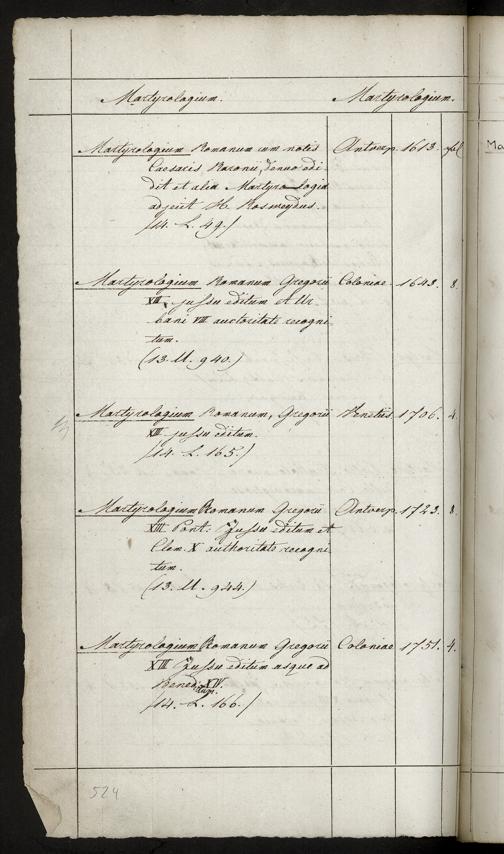 Martyrologium. Martyrologium.
Ma
Martyrologium Romanum cum notis Antverp. 1613.
Caesaris, Baronii, denuo edi-
dit et alia Martyrologia
adjecit H. Rosweydus.
/14. L. 49./
Martyrologium Romanum Gregorii Coloniae. 1643. 8.
XIII. jussu editum et Ur-
bani VIII auctoritate recogni
tum.
(13. M. 940.)
Martyrologium Romanum, Gregorii Venetiis 1706. 4.
XIII jussu editum.
/14. L. 165./
Martyrologium Romanum Gregorii Antverp. 1723. 8.
XIII. Pont. Jussu editum et
Clem. X authoritate recogni
tum.
(13. M. 944.)
Martyrologium Romanum Gregorii Coloniae 1751. 4.
XIII Jussu editum usque ad
Bened. XIV.
/14. L. 166./
524